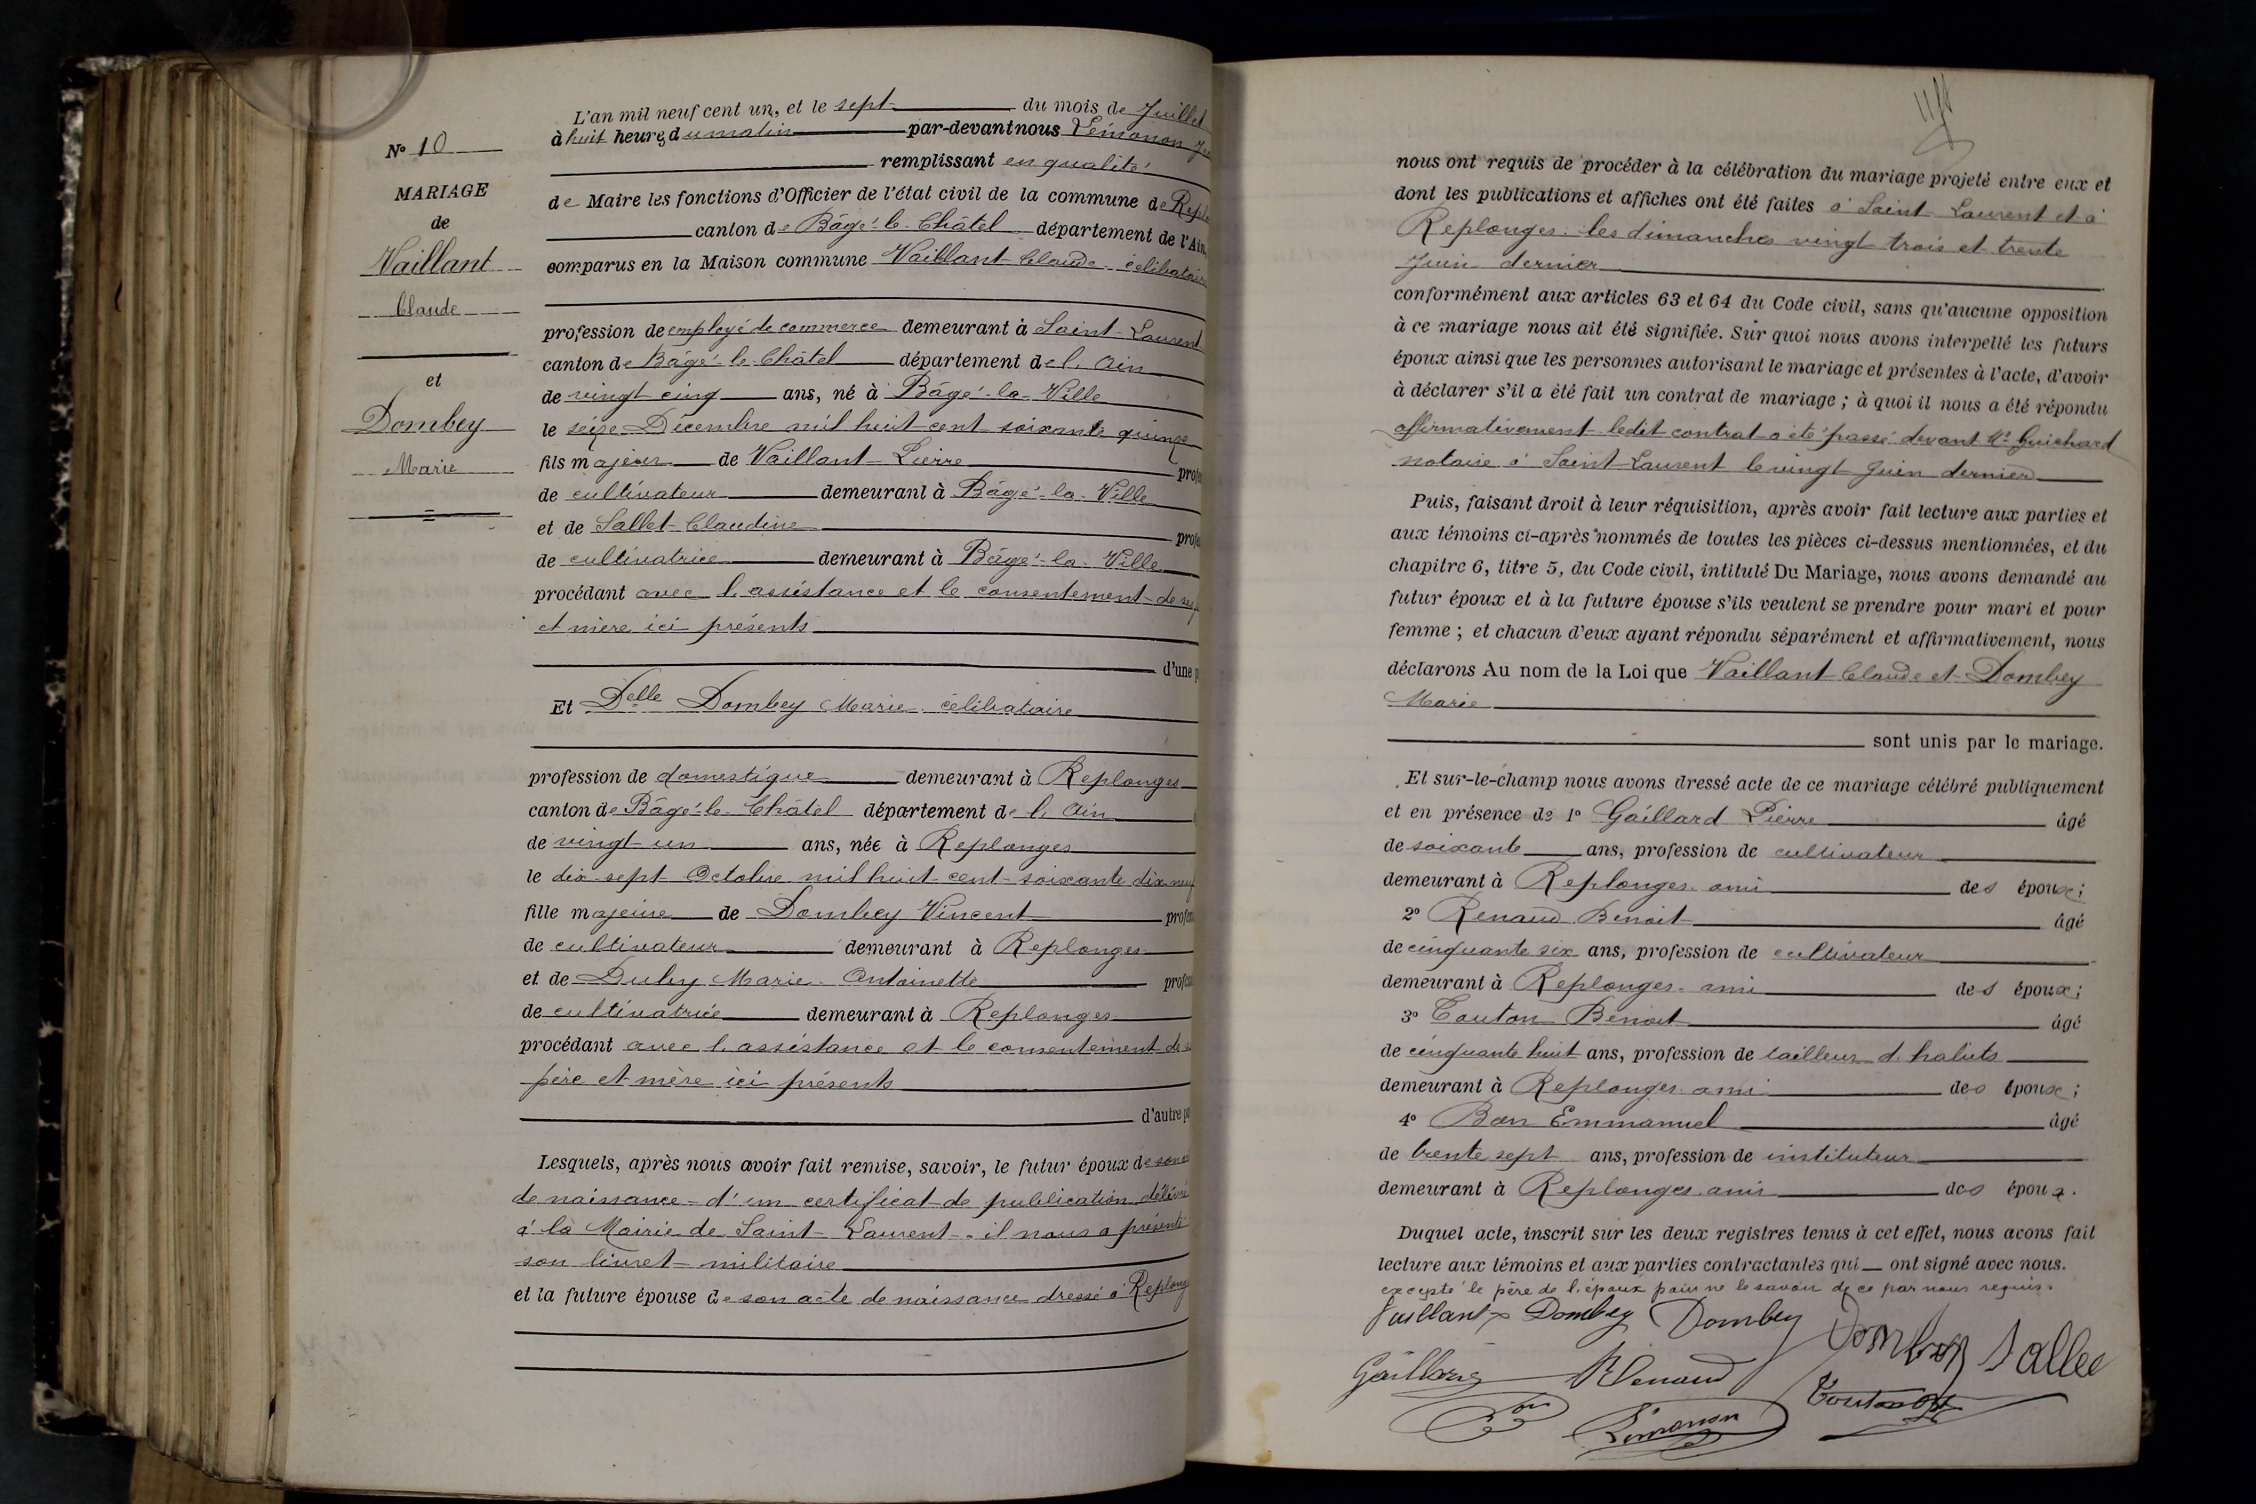 L'an mil neuf cent un, et le sept du mois de Juillet
à huit heures du matin par-devant nous Lémonon
remplissant en qualité
de Maire les fonctions d'Officier de l'état civil de la commune de Repl
canton de Bâgé-le-Châtel département de l'Ain,
comparus en la Maison commune Vaillant Claude célibataire
profession de employé de commerce demeurant à Saint-Laurent
canton de Bâgé-le-Châtel département de l'Ain
de vingt cinq ans, né à Bâgé-la-Ville
le seize Décembre mil huit cent soixante quinze
fils majeur de Vaillant Pierre profes
de cultivateur demeurant à Bâgé-la-Ville
et de Sallet Claudine profes
de cultivatrice demeurant à Bâgé-la-Ville
procédant avec l'assistance et le consentement de ses
et mère ici présents
d'une p
Et Delle Dombey Marie célibataire
profession de domestique demeurant à Replonges
canton de Bâgé-le-Châtel département de l'Ain
de vingt-un ans, née à Replonges
le dix-sept Octobre mil huit cent soixante dix neuf
fille majeure de Dombey Vincent profes
de cultivateur demeurant à Replonges
et de Duby Marie Antoinette profes
de cultivatrice demeurant à Replonges
procédant avec l'assistance et le consentement de s
père et mère ici présents
d'autre pa
Lesquels, après nous avoir fait remise, savoir, le futur époux de son a
de naissance d'un certificat de publication délivré
à la Mairie de Saint-Laurent il nous a présenté
son livret militaire
et la future épouse de son acte de naissance dressé à Replong
No 10
MARIAGE
de
Vaillant
Claude
et
Dombey
Marie
nous ont requis de procéder à la célébration du mariage projeté entre eux et
dont les publications et affiches ont été faites à Saint Laurent et à
Replonges les dimanches vingt trois et trente
Juin dernier
conformément aux articles 63 et 64 du Code civil, sans qu'aucune opposition
à ce mariage nous ait été signifiée. Sur quoi nous avons interpellé les futurs
époux ainsi que les personnes autorisant le mariage et présentes à l'acte, d'avoir
à déclarer s'il a été fait un contrat de mariage ; à quoi il nous a été répondu
affirmativement ledit contrat a été passé devant Me Guichard
notaire à Saint-Laurent le vingt Juin dernier
Puis, faisant droit à leur réquisition, après avoir fait lecture aux parties et
aux témoins ci-après nommés de toutes les pièces ci-dessus mentionnées, et du
chapitre 6, titre 5, du Code civil, intitulé Du Mariage, nous avons demandé au
futur époux et à la future épouse s'ils veulent se prendre pour mari et pour
femme ; et chacun d'eux ayant répondu séparément et affirmativement, nous
déclarons Au nom de la Loi que Vaillant Claude et Dombey
Marie
sont unis par le mariage.
Et sur-le-champ nous avons dressé acte de ce mariage célébré publiquement
et en présence de 1o Gaillard Pierre âgé
de soixante ans, profession de cultivateur
demeurant à Replonges ami des époux ;
2o Renaud Benoit âgé
de cinquante six ans, profession de cultivateur
demeurant à Replonges ami des époux ;
3o Touton Benoit âgé
de cinquante huit ans, profession de tailleur d'habits
demeurant à Replonges ami des époux ;
4o Bon Emmanuel âgé
de trente sept ans, profession de instituteur
demeurant à Replonges ami des époux.
Duquel acte, inscrit sur les deux registres tenus à cet effet, nous avons fait
lecture aux témoins et aux parties contractantes qui ont signé avec nous.
excepté le père de l'époux pour ne le savoir de ce par nous requis.
Vaillant Dombey Dombey Dombey Sallet
Gaillard Renaud Touton
Bon Lémonon